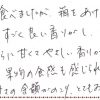 食べましたが、箱をあけ
すごく良い香りがし、
らに甘くてやさしい香りが
果物の食感を感じられ
さの金額がのり、とても